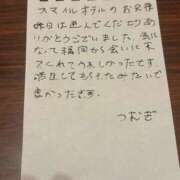 スマイルホテルのお兄様
昨日は遊んでくださり
ありがとうございました。気に
なって福岡から会いに来
てくれてうれしかったです。
満足してもらえたみたいで
良かったです。
つむぎ